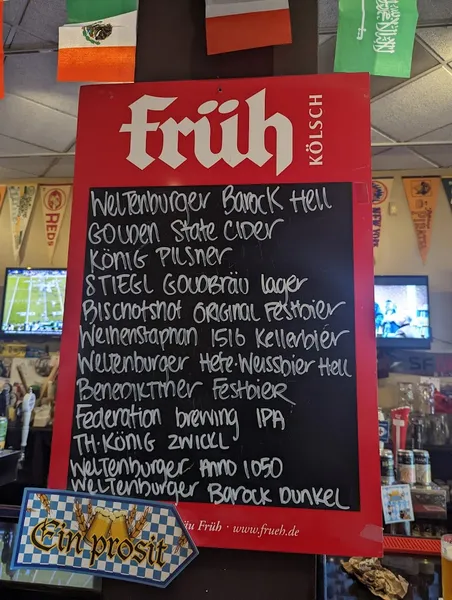 Früh
KÖLSCH
WELTENBURGER BAROCK HELL
GOLDEN STATE CIDER
KÖNIG PILSNER
STIEGL GOLDBRÄU lager
BISCHOFSHOF ORIGINAL FESTBIER
Weihenstaphan 1516 Kellerbier
Weltenburger Hefe-Weissbier Hell
BENEDIKTINER FESTBIER
Federation brewing IPA
TH. KÖNIG ZWICKL
WELTENBURGER ANNO 1050
WELTENBURGER BAROCK DUNKEL
Früh · www.frueh.de
Ein prosit
REDS
PIRATES